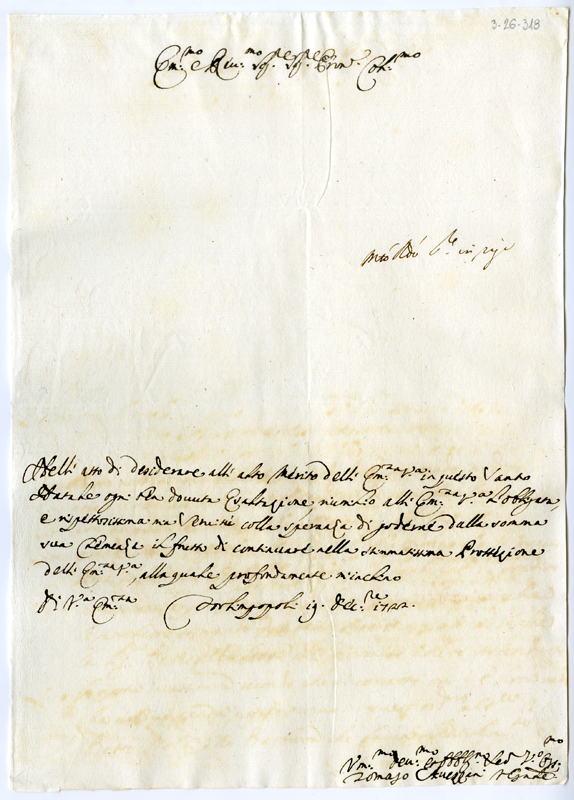 3-26-318
Em.mo e Rev.mo Sig.re Sig.re Pron.e Col.mo
Nell' atto di desiderare all' alto Merito dell' Em.za V.ra in questo Santo
Natale ogni ben dovuta Esaltazione rinunzio all' Em.za V.ra l'obligata,
e rispettosissima mia Servitù colla speranza di goderne dalla somma
sua Clemenza il frutto di continuare nella stimatissima Protezione
dell' Em.za V.ra, alla quale profondamente m'inchino
Di V.ra Em.za Forlimpopoli 19. Dec.re 1722.
Vm.mo Dev.mo ed Obbl.mo
Tomaso